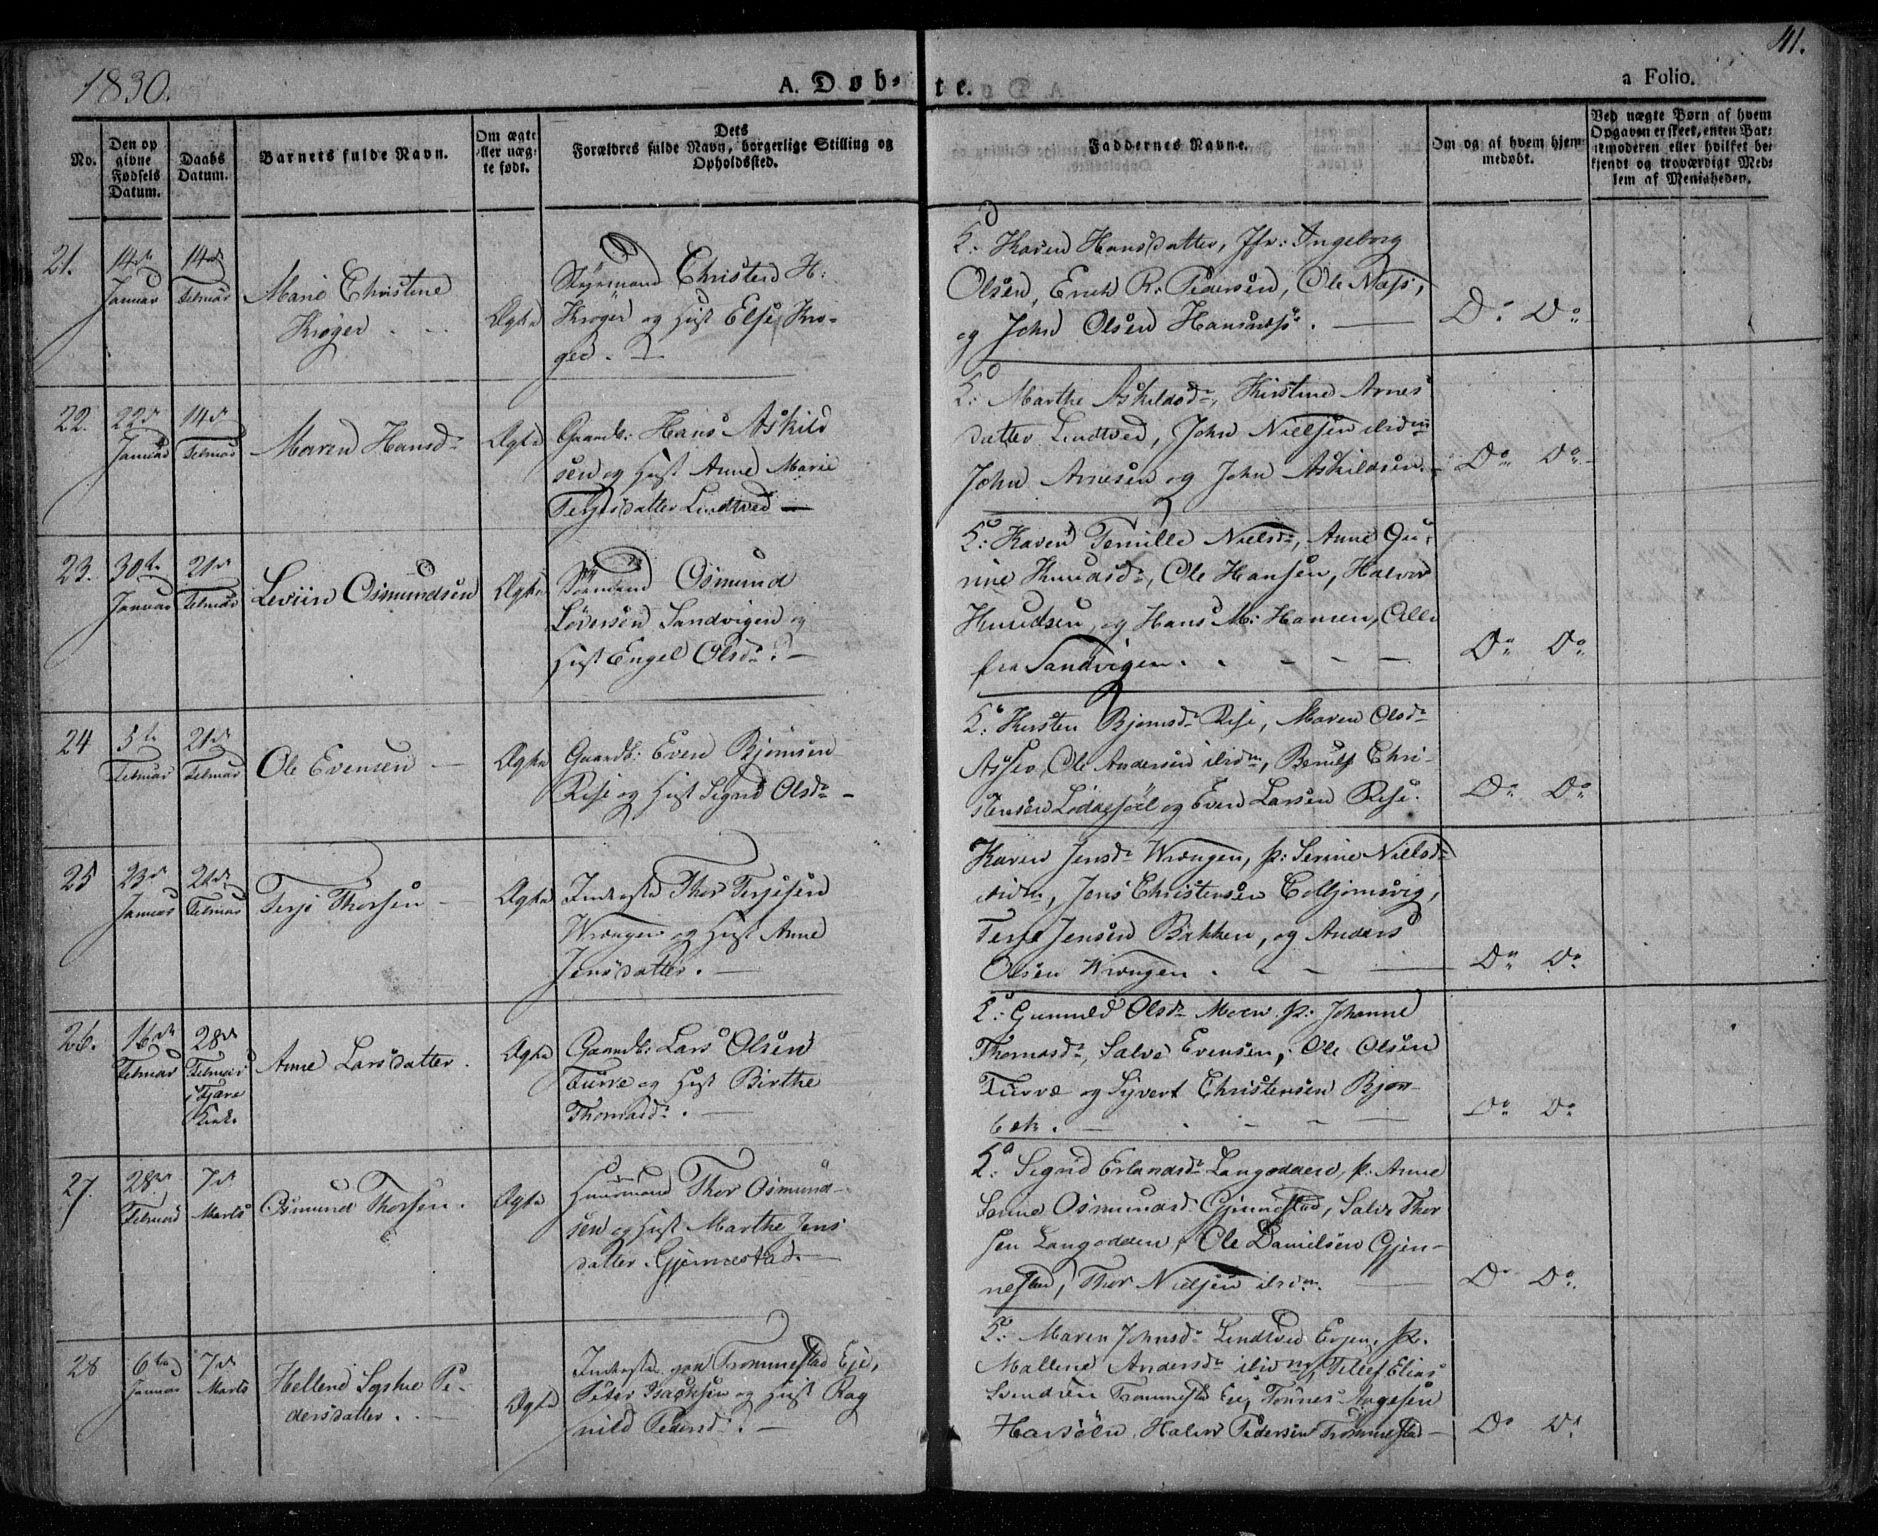 1830.
A. Døb-
te.
a Folio.
41.
No.
Den op
givne
Fødsels
Datum.
Daabs
Datum.
Barnets fulde Navn.
Om ægte
eller næg-
te født.
Dets
Forældres fulde Navn, borgerlige Stilling og
Opholdssted.
Faddernes Navne.
Om og af hvem hjem-
medøbt.
Ved uægte Børn af hvem
Opgaven er skeet, enten Bar-
nemoderen eller hvilket be-
kjendt og troværdigt Med-
lem af Menigheden.
21.
14de
Januar
14de
Februar
Marie Christine
Krøger
Ægte
Styrmand Christen H:
Krøger og Hust Else Krø-
ger.
K: Karen Hansdatter, Jfr: Ingeborg
Olsen, Erich R: Pedersen, Ole Næss,
og John Olsen Hansnæs.
Do Do
22.
22de
Januar
14de
Februar
Maren Hansdr
Ægte
Gaardb: Hans Askild
sen og Hust Anne Marie
Terjesdatter Lindtved
K: Marthe Askildsdr, Kirstine Arnes
datter Lindtved, John Nielsen ibidm
John Arnesen og John Askildsen.
Do Do
23.
30te
Januar
21de
Februar
Leviin Osmundsen
Ægte
Sømand Osmund
Sandvigen og
Hust Engel Olsdr.
K: Karen Pernille Nielsdr, Anne Gu-
rine Knudsdr, Ole Hansen, Halvor
Knudsen, og Hans M: Hansen, Alle
fra Sandvigen.
Do Do
24
5te
Februar
21de
Februar
Ole Evensen
Ægte
Gaardb: Even Bjørnsen
Rise og Hust Sigrid Olsdr
K: Kirsten Bjørnsdr Rise, Maren Olsdr
Ole Andersen ibidm, Berulf Chri-
stensen og Even Larsen Rise.
Do Do
25
23de
Januar
21de
Februar
Terje Thorsen
Ægte
Inderste Thor Terjesen
Wrangen og Hust Anne
Jensdatter.
Karen Jensdr Wrangen, p: Serine Nielsdr
ibidm, Jens Christensen Colbjørnsvig,
Terje Jensen Bakken, og Anders
Olsen Wrangen
Do Do
26.
16de
Februar
28de
Februar
i Tjære
Kirke
Anne Larsdatter.
Ægte
Gaardb: Lars Olsen
Furre og Hust Birthe
Thomasdr.
K: Gunnild Olsdr Moen p: Johanne
Thomasdr, Salve Evensen, Ole Olsen
Furre og Syvert Christensen Bjør-
bæk.
Do Do
27.
28de
Februar
7de
Marts
Osmund Thorsen.
Ægte
Huusmand Thor Osmund-
sen og Hust Marthe Jens
datter Gjennestad.
K: Sigrid Erlandsdr Langodden, p: Anne
Osmundsdr Gjennestad, Salve Thor
sen Langodden, Ole Danielsen Gjen-
nestad, Thor Nielsen ibidm.
Do Do
28
6te
Januar
7de
Marts
Hellene Sophie Pe-
dersdatter.
Ægte
Inderste paa Trommestad Eje,
Peter Isachsen og Hust Rag
nild Pedersdr.
K: Maren Johnsdr Lindtved Eyen, p.
Mallene Andersdr ibidm, Tellef Elias
Svendsen Trommestad Eje, Tønnes Aagesen
Havsøen, Halvor Pedersen Trommestad
Do Do